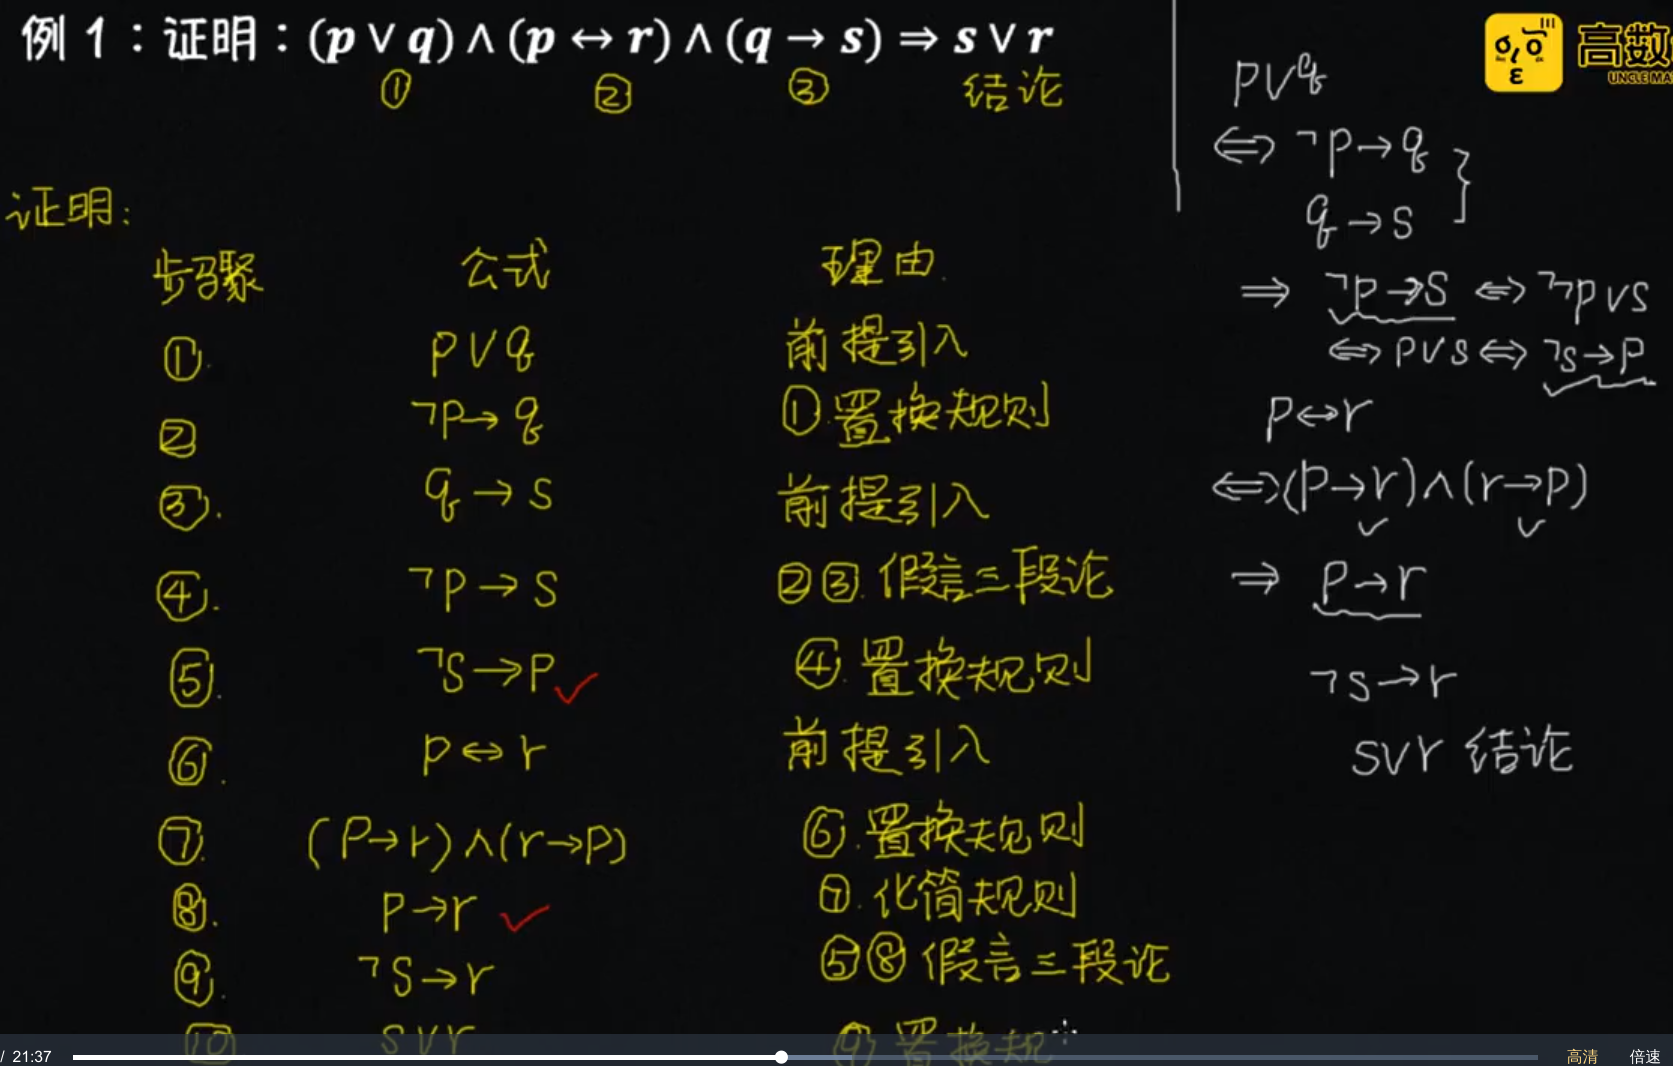 例 1：证明：(p ∨ q) ∧ (p ↔ r) ∧ (q → s) ⇒ s ∨ r
① ② ③ 结论
证明:
步骤 公式 理由
①. p∨q 前提引入
② ¬p→q ①.置换规则
③. q→s 前提引入
④. ¬p→s ②③.假言三段论
⑤. ¬s→p ④.置换规则
⑥. p↔r 前提引入
⑦. (p→r)∧(r→p) ⑥.置换规则
⑧. p→r ⑦.化简规则
⑨. ¬s→r ⑤⑧假言三段论
⑩ s∨r ⑨置换规
p∨q
⇔ ¬p→q
q→s
⇒ ¬p→s ⇔ ¬¬p∨s
⇔ p∨s ⇔ ¬s→p
p↔r
⇔(p→r)∧(r→p)
⇒ p→r
¬s→r
s∨r 结论
高数
UNCLE MA
/ 21:37
高清 倍速